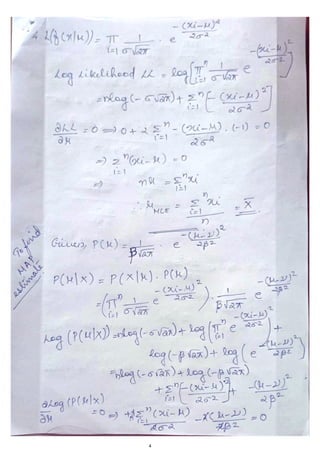 L(f(x|μ)) = π^n_{i=1} 1/(σ√2π) · e^{-(xi-μ)²/2σ²}
Log Likelihood LL = log[π^n_{i=1} 1/(σ√2π) e^{-(xi-μ)²/2σ²}]
= nlog(-σ√2π) + Σ^n_{i=1} [-(xi-μ)²/2σ²]
∂LL/∂μ = 0 ⇒ 0 + 2 Σ^n_{i=1} -(xi-μ)/2σ² · (-1) = 0
⇒ Σ^n_{i=1} (xi-μ) = 0
⇒ nμ = Σ^n_{i=1} xi
∴ μ_MLE = Σ^n_{i=1} xi / n = x̄
To find MAP estimate
Given, P(μ) = 1/(β√2π) · e^{-(μ-ν)²/2β²}
P(μ|X) = P(X|μ) · P(μ)
= (π^n_{i=1} 1/(σ√2π) e^{-(xi-μ)²/2σ²}) · 1/(β√2π) e^{-(μ-ν)²/2β²}
Log(P(μ|X)) = nlog(-σ√2π) + log(π^n_{i=1} e^{-(xi-μ)²/2σ²}) +
log(-β√2π) + log(e^{-(μ-ν)²/2β²})
= nlog(-σ√2π) + log(-β√2π)
+ Σ^n_{i=1} [-(xi-μ)²/2σ²] + -(μ-ν)²/2β²
∂Log(P(μ|X))/∂μ = 0 ⇒ +2 Σ^n_{i=1} (xi-μ)/2σ² - 2(μ-ν)/2β² = 0
4